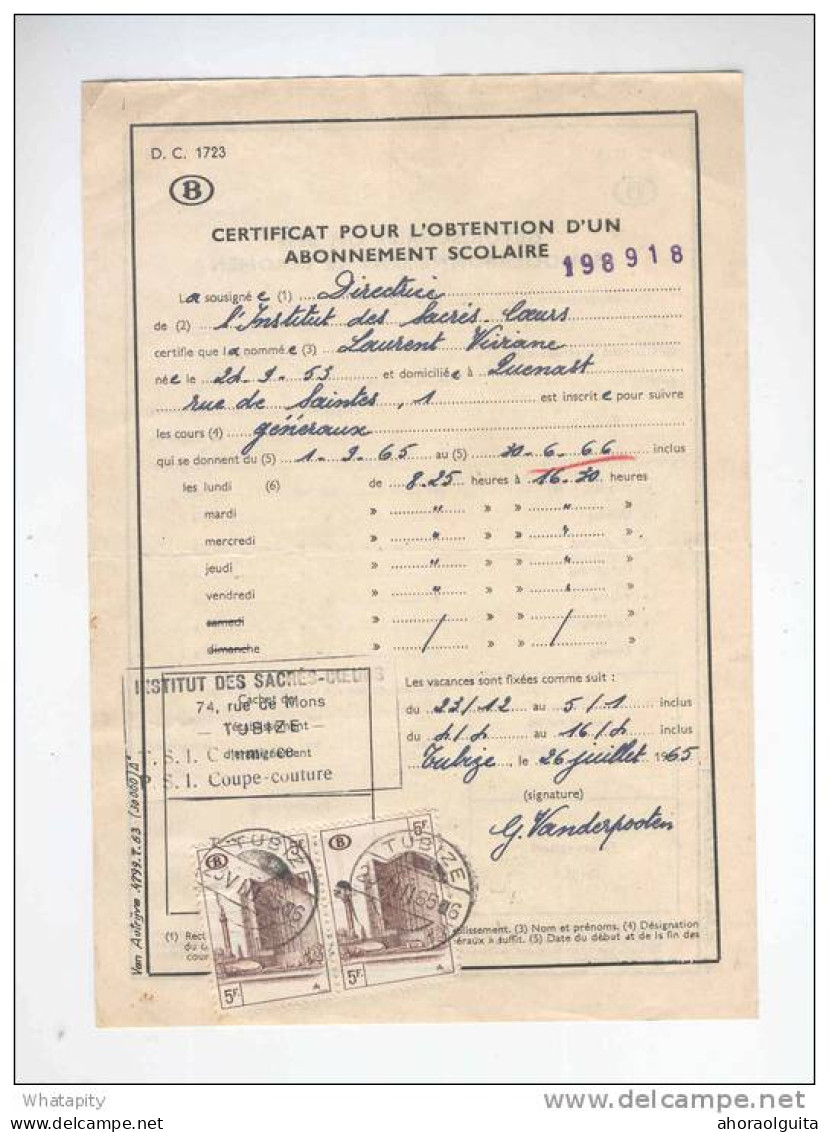 D. C. 1723
B
CERTIFICAT POUR L'OBTENTION D'UN
ABONNEMENT SCOLAIRE
198918
La sousignée (1) Directrice
de (2) l'Institut des Sacrés. Cœurs
certifie que la nommée (3) Laurent Viviane
née le 24-9-53 et domiciliée à Quenast
rue de Saintes, 1 est inscrite pour suivre
les cours (4) généraux
qui se donnent du (5) 1-9-65 au (5) 30-6-66 inclus
les lundi (6) de 8.25 heures à 16-30 heures
mardi » " » » " »
mercredi » " » » " »
jeudi » " » » " »
vendredi » " » » " »
samedi » / » » / »
dimanche » / » » / »
INSTITUT DES SACRÉS-CŒURS
74, rue de Mons
— TUBIZE —
Cachet de
l'établissement
d'enseignement
T. S. I. Commerce
P. S. I. Coupe-couture
Les vacances sont fixées comme suit :
du 23/12 au 5/1 inclus
du 4/4 au 16/4 inclus
Tubize, le 26 juillet 1965
(signature)
G. Vanderpooten
TUBIZE
TUBIZE
B
B
5F
5F
5F.
5F.
Van Autrijve .4799.T.63 (30 000) A4
(1) Rect
du
cour
(3) Nom et prénoms. (4) Désignation
à suffit. (5) Date du début et de la fin des
Whatapity
delcampe.net
ahoraolguita